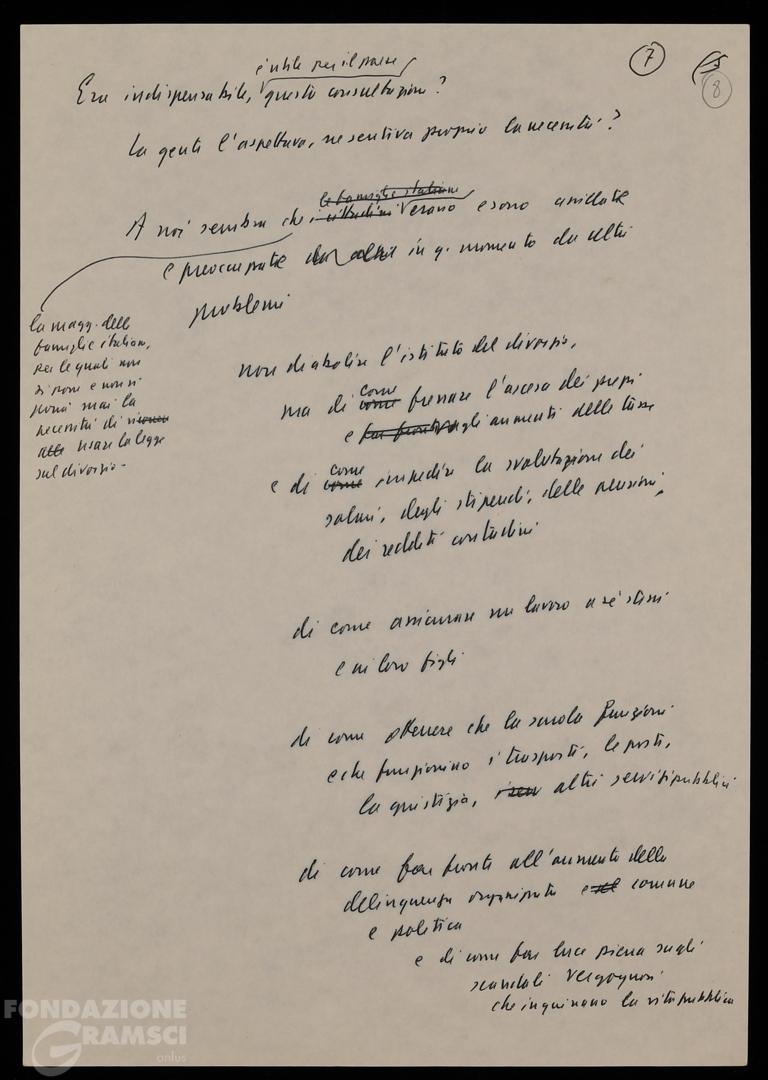 7
8
è utile per il paese
Era indispensabile, questa consultazione?
La gente l'aspettava, ne sentiva proprio la necessità?
le famiglie italiane
A noi sembra che i cittadini erano e sono assillate
e preoccupate in q. momento da altri
problemi
la magg. delle
famiglie italiane,
per le quali non
si pone e non si
porrà mai la
necessità di
usare la legge
sul divorzio -
non di abolire l'istituto del divorzio,
ma di come frenare l'ascesa dei prezzi
e gli aumenti delle tasse
e di come impedire la svalutazione dei
salari, degli stipendi, delle pensioni,
dei redditi contadini
di come assicurare un lavoro a sé stessi
e ai loro figli
di come ottenere che la scuola funzioni
e che funzionino i trasporti, le poste,
la giustizia, altri servizi pubblici
di come far fronte all'aumento della
delinquenza organizzata comune
e politica
e di come far luce piena sugli
scandali vergognosi
che inquinano la vita pubblica
FONDAZIONE
GRAMSCI
onlus